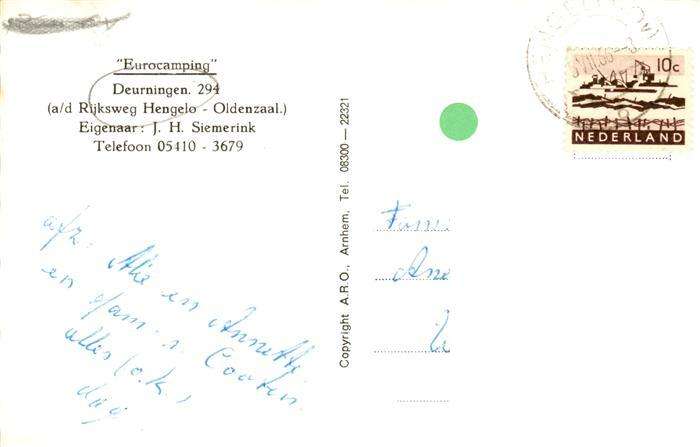 "Eurocamping"
Deurningen. 294
(a/d Rijksweg Hengelo - Oldenzaal.)
Eigenaar: J. H. Siemerink
Telefoon 05410 - 3679
afz. Mie en Annette
en fam. v. Coaten
alles (o.k.,
dag
Copyright A.R.O., Arnhem, Tel. 08300 — 22321
10c
NEDERLAND
Fam.